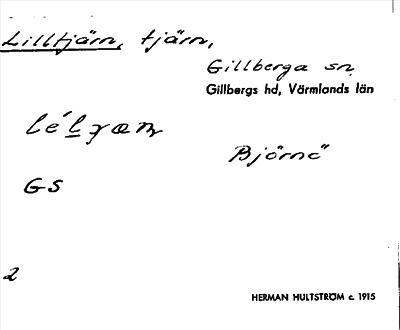 Lilltjärn, tjärn,
Gillberga sn.
Gillbergs hd, Värmlands län
Björnö
GS
2
HERMAN HULTSTRÖM c. 1915